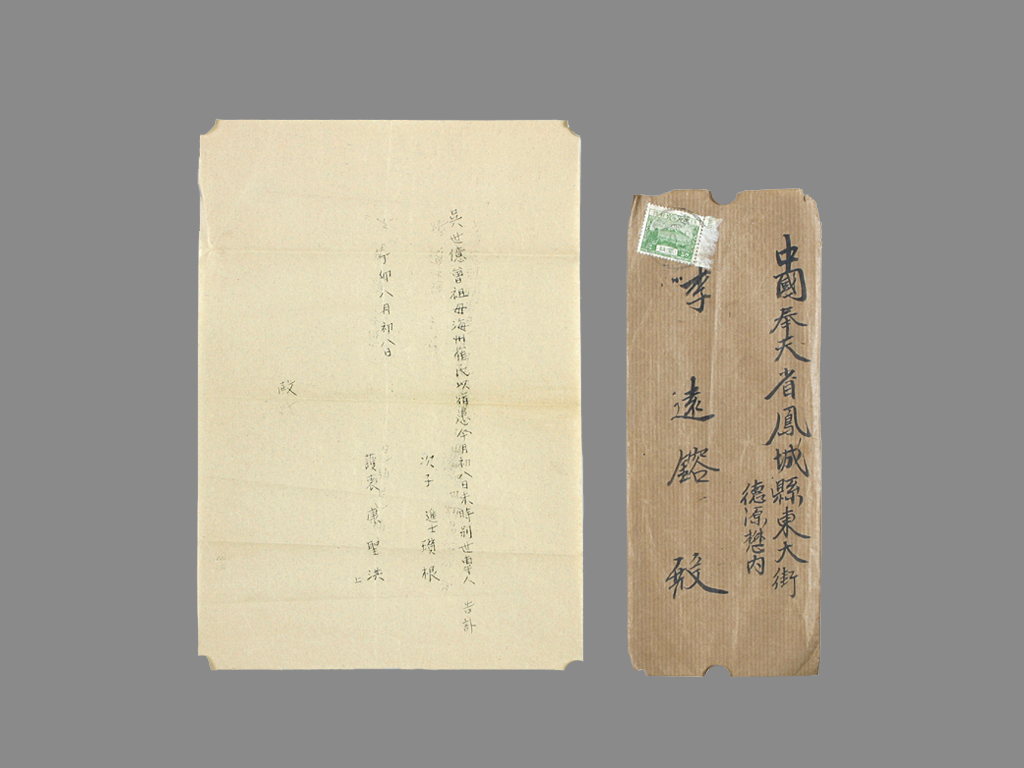 吳世德曾祖母海州崔氏以宿患今月初八日未時別世專人 告訃
次子 進士瓚根
丁卯八月初八日
護喪 聖洪 上
中國奉天省鳳城縣東大街
德源樊內
李 遠鎔 殿